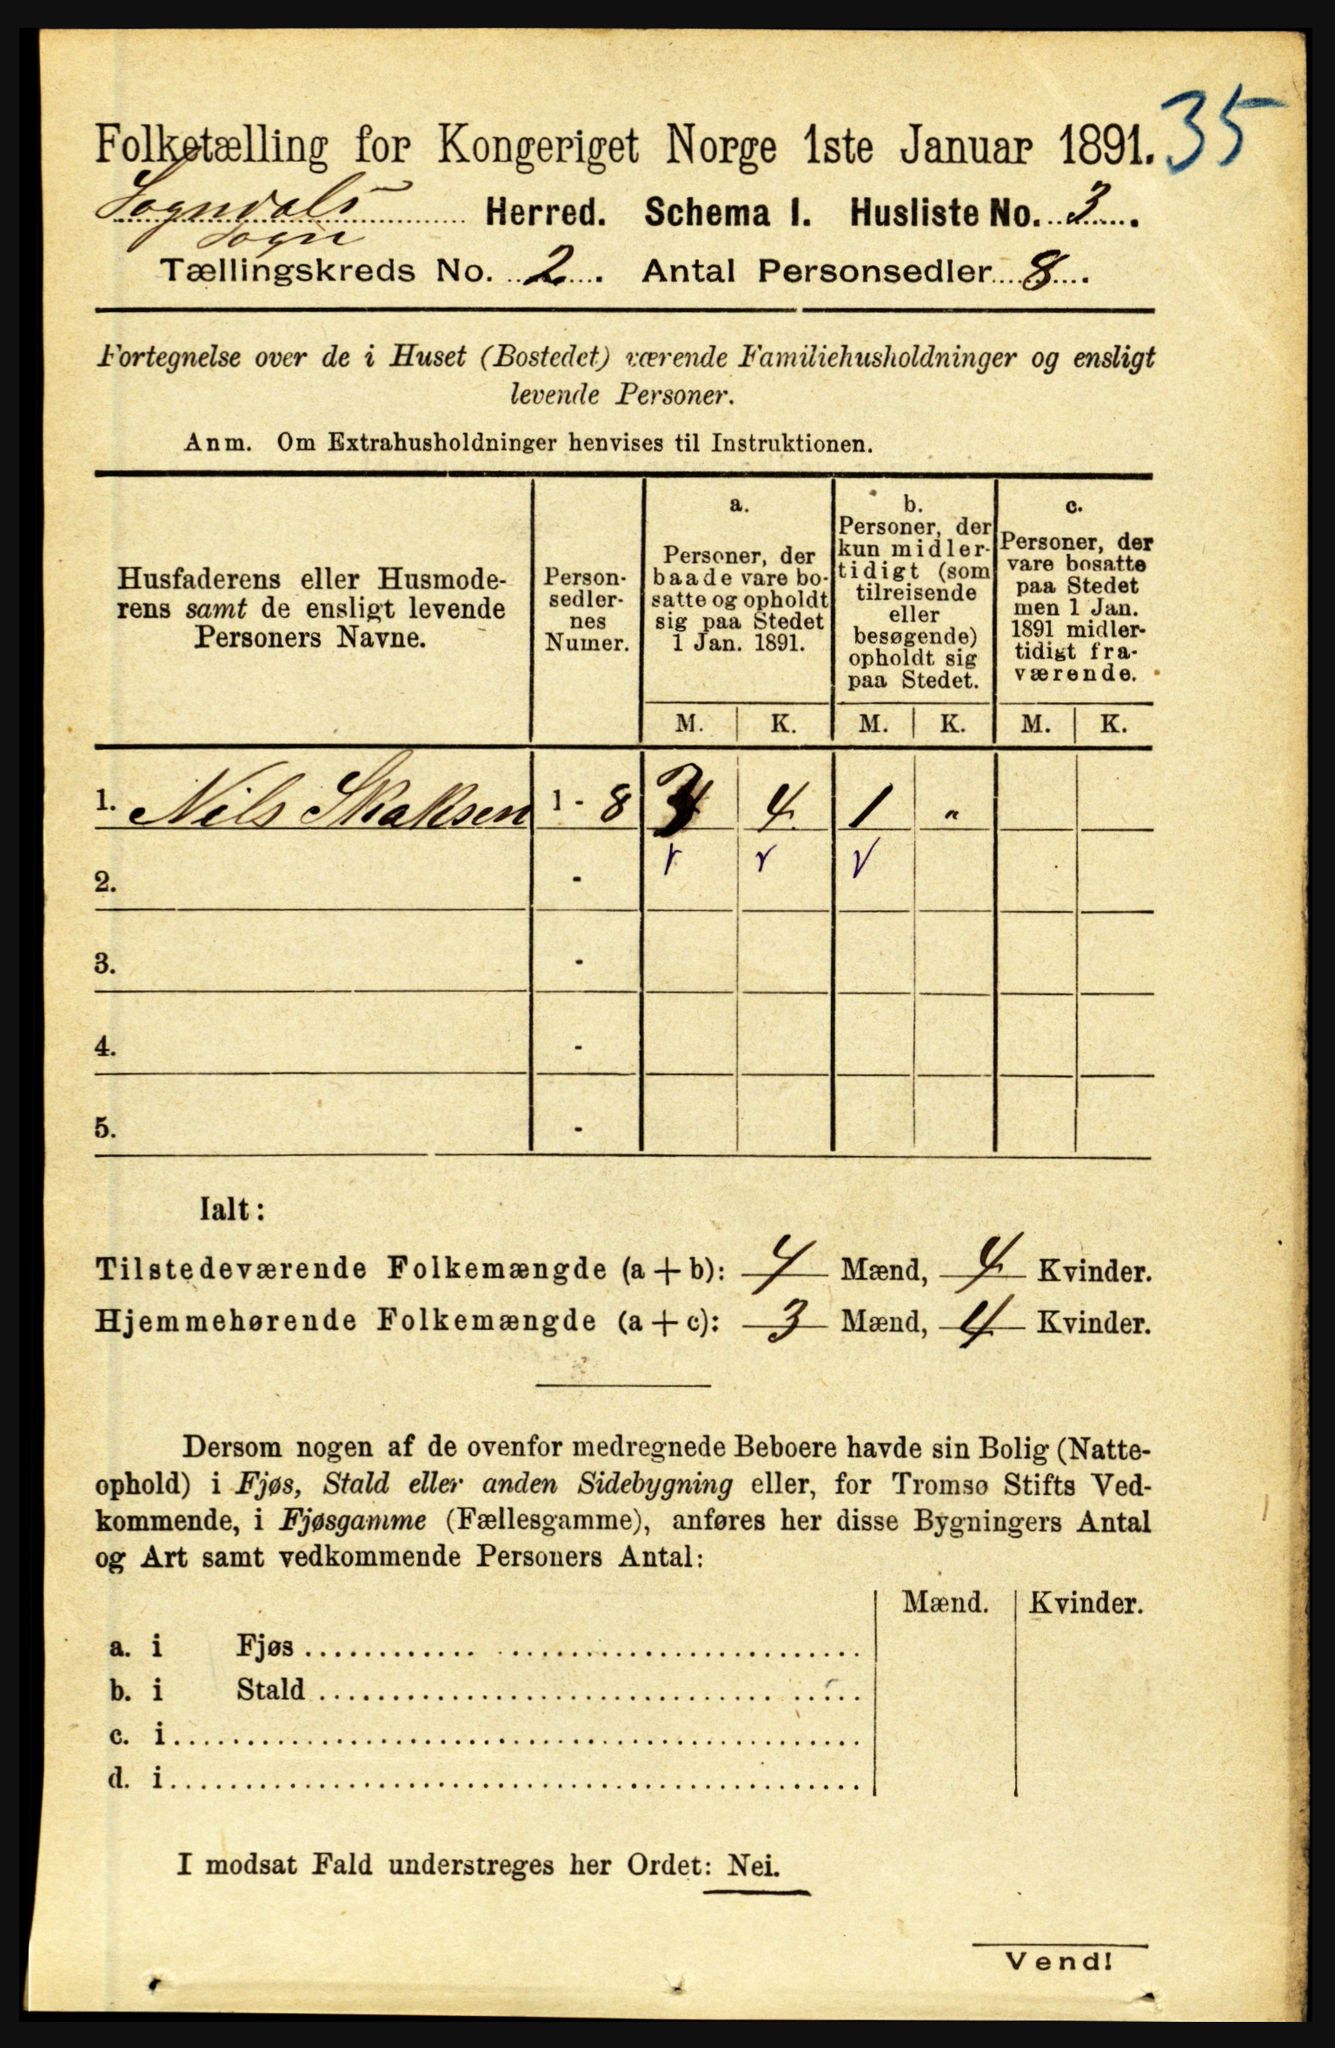 35
Folketælling for Kongeriget Norge 1ste Januar 1891.
Sogndals Herred. Schema I. Husliste No. 3.
Sogn
Tællingskreds No. 2. Antal Personsedler 8.
Fortegnelse over de i Huset (Bostedet) værende Familiehusholdninger og ensligt
levende Personer.
Anm. Om Extrahusholdninger henvises til Instruktionen.
Husfaderens eller Husmode-
rens samt de ensligt levende
Personers Navne.
Person-
sedler-
nes
Numer.
a.
Personer, der
baade vare bo-
satte og opholdt
sig paa Stedet
1 Jan. 1891.
b.
Personer, der
kun midler-
tidigt (som
tilreisende
eller
besøgende)
opholdt sig
paa Stedet.
c.
Personer, der
vare bosatte
paa Stedet
men 1 Jan.
1891 midler-
tidigt fra-
værende.
M. K. M. K. M. K.
1. Nils Skaksen 1 - 8 3 4 1 "
2. -
3. -
4. -
5. -
Ialt:
Tilstedeværende Folkemængde (a + b): 4 Mænd, 4 Kvinder.
Hjemmehørende Folkemængde (a + c): 3 Mænd, 4 Kvinder.
Dersom nogen af de ovenfor medregnede Beboere havde sin Bolig (Natte-
ophold) i Fjøs, Stald eller anden Sidebygning eller, for Tromsø Stifts Ved-
kommende, i Fjøsgamme (Fællesgamme), anføres her disse Bygningers Antal
og Art samt vedkommende Personers Antal:
Mænd. Kvinder.
a. i Fjøs
b. i Stald
c. i
d. i
I modsat Fald understreges her Ordet: Nei.
Vend!